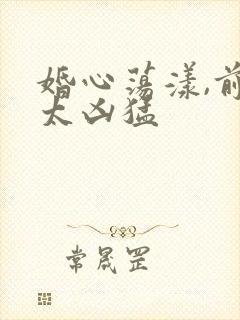 婚心荡漾,前
太凶猛
常晟罡